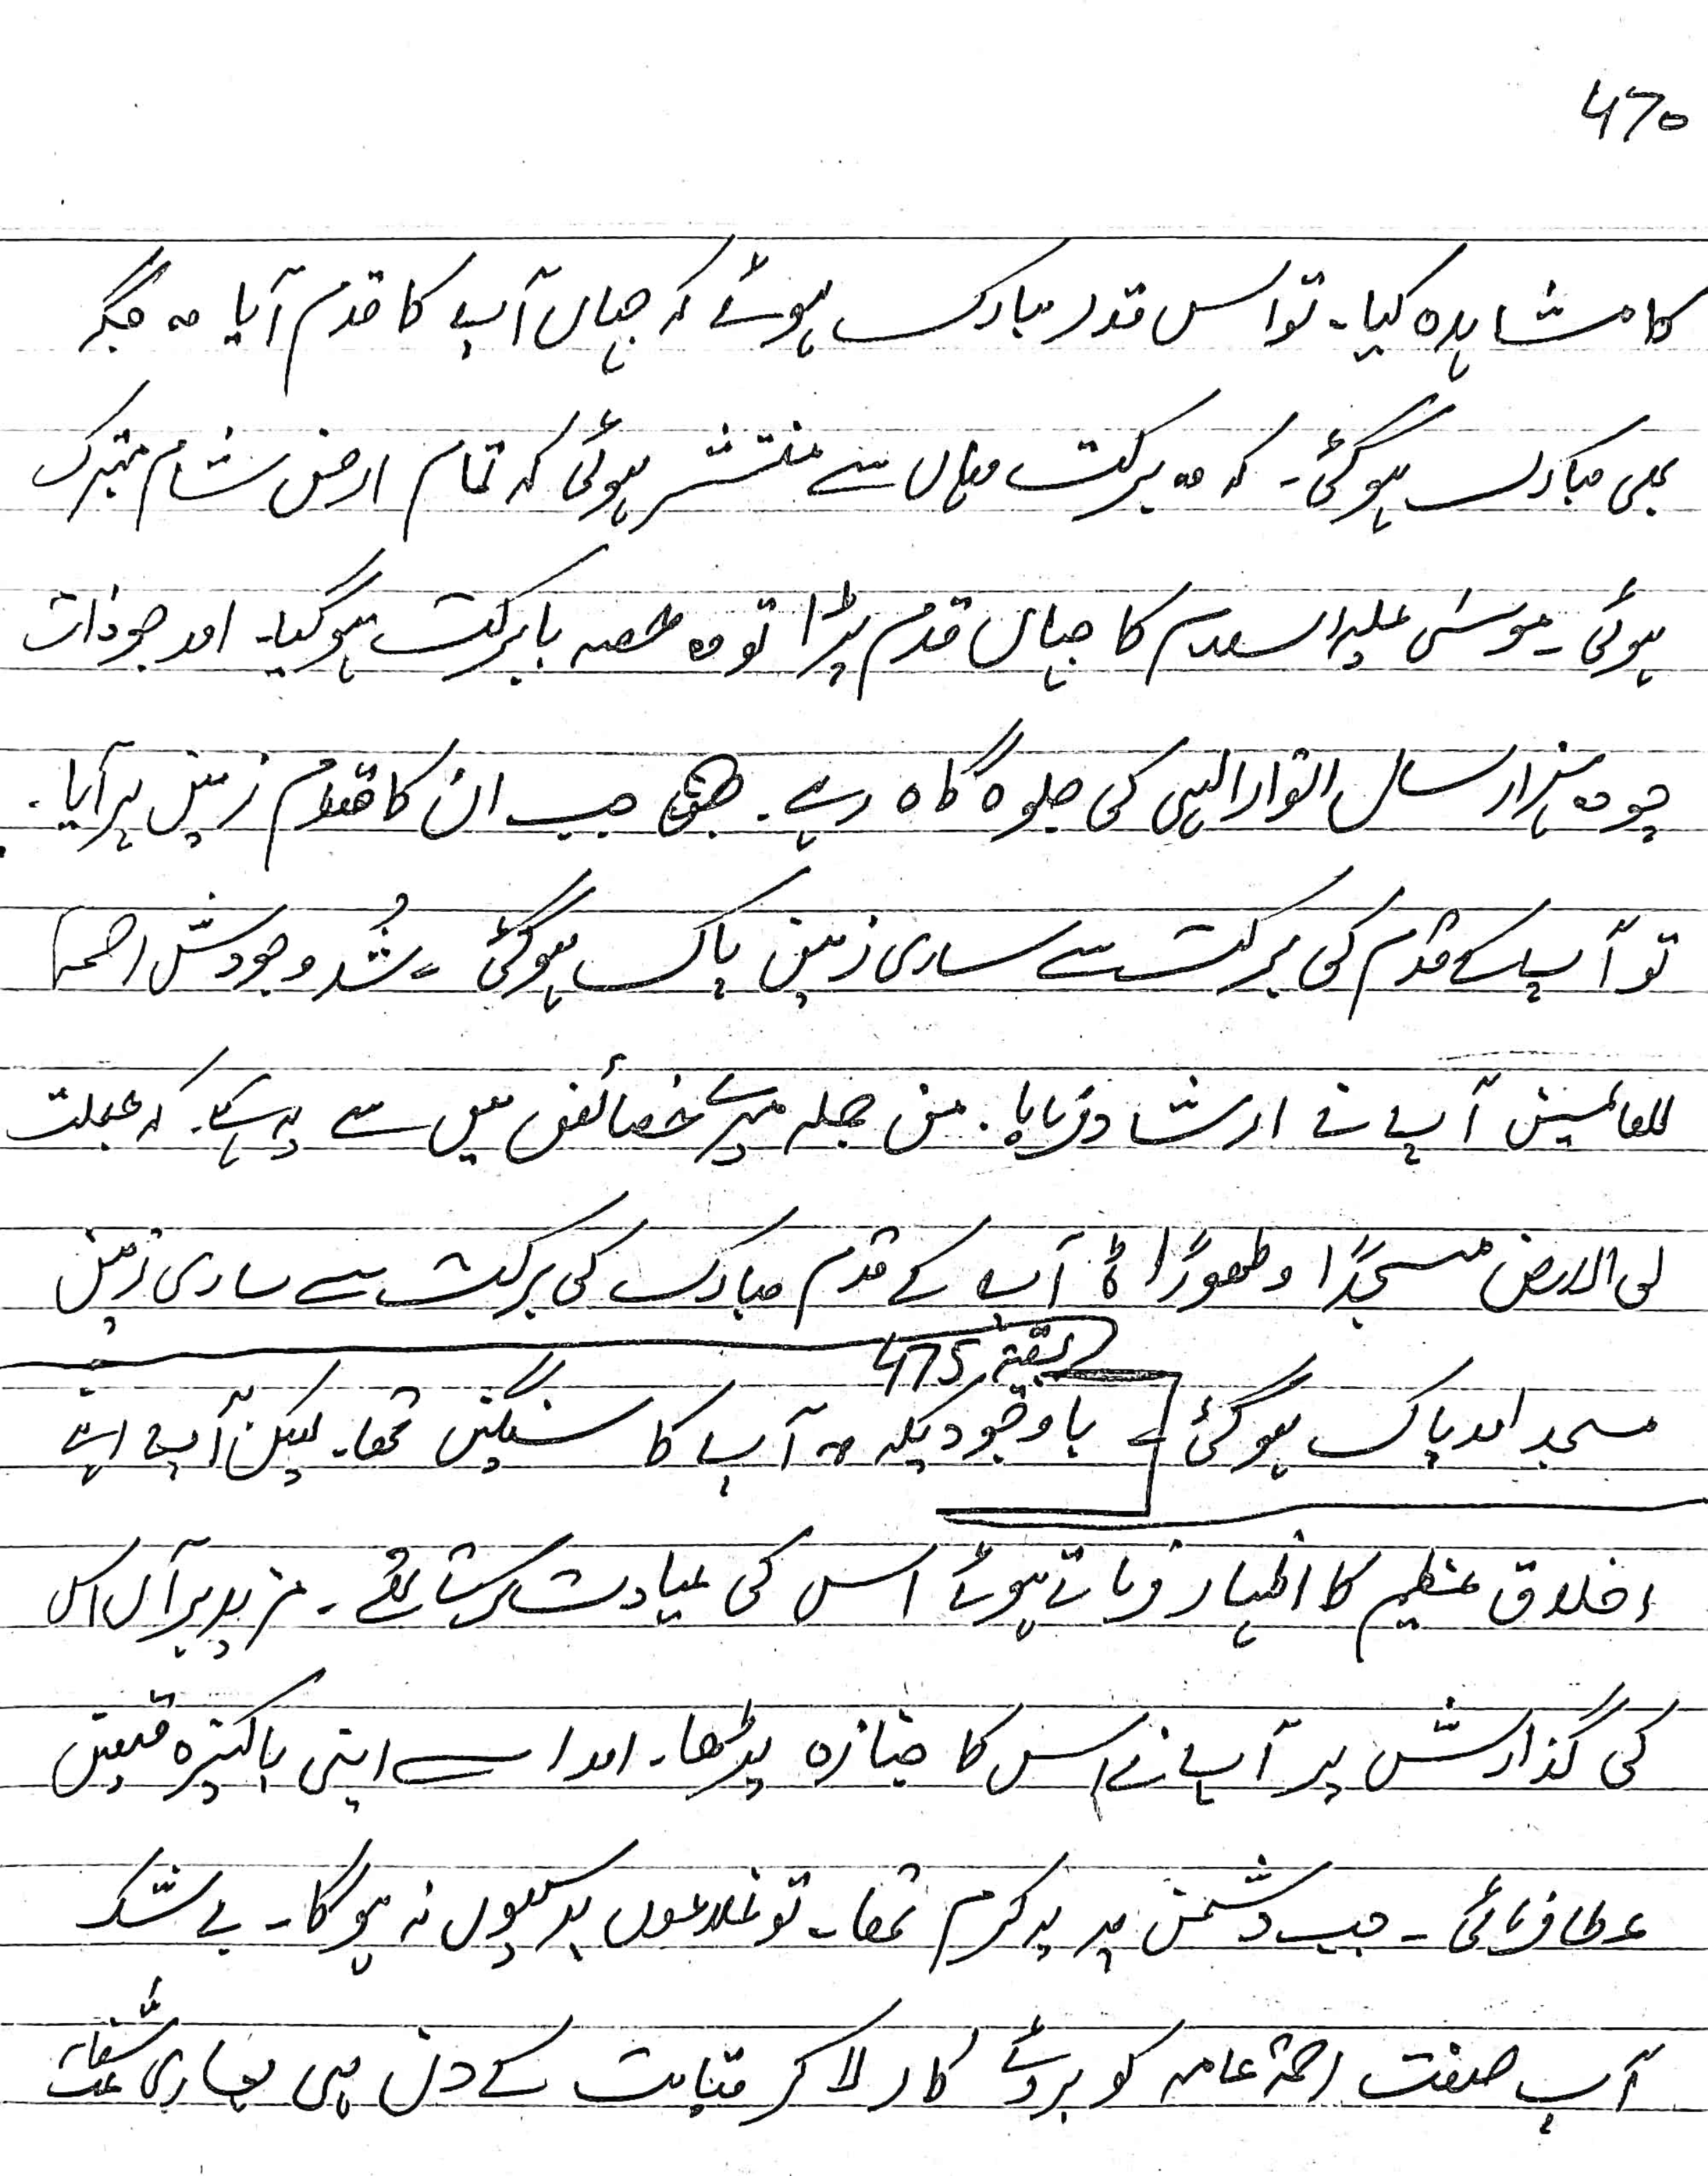 470
کا مشاہدہ کیا۔ تو اس قدر مبارک ہوئے کہ جہاں آپ کا قدم آیا وہ جگہ
بھی مبارک ہو گئی۔ کہ وہ برکت وہاں سے منتشر ہوئی کہ تمام ارض شام متبرک
ہوئی۔ موسیٰ علیہ السلام کا جہاں قدم پڑا تو وہ حصہ بابرکت ہو گیا۔ اور جو ذات
چودہ ہزار سال انوار الہی کی جلوہ گاہ رہے۔ جب ان کا قدم زمین پر آیا۔
تو آپ کے قدم کی برکت سے ساری زمین پاک ہو گئی۔ شُد وجودش رحمۃ
للعالمین آپ نے ارشاد فرمایا۔ من جملہ میرے خصائص میں سے یہ ہے۔ کہ جعلت
لی الارض مسجدًا وطھورًا آپ کے قدم مبارک کی برکت سے ساری زمین
بقیہ 475
مسجد اور پاک ہو گئی باوجودیکہ وہ آپ کا سنگین تھا۔ لیکن آپ اپنے
اخلاق عظیم کا اظہار فرماتے ہوئے اس کی عیادت کرنے گئے۔ مزید برآں اس
کی گذارش پر آپ نے اس کا جنازہ پڑھا۔ اور اسے اپنی پاکیزہ قمیض
عطا فرمائی۔ جب دشمن پر یہ کرم تھا۔ تو غلاموں پر کیوں نہ ہوگا۔ بے شک
آپ صفت رحمۃ عامہ کو بروئے کار لا کر قیامت کے دن بھی ہماری شفاعت